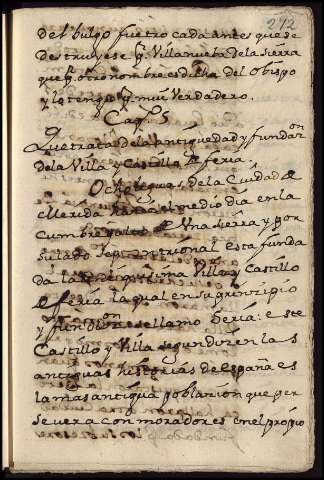 272
del bulgo fue trocada antes que se
destruyese q̃. Villanueba de la sierra
que p̃. otro nombre es dicha del Obispo
y lo tengo p̃. muy Verdadero.
Cap.º 5
Que trata de la antiguedad y fundaz.on
de la Villa y Castillo de feria.
Ocho leguas de la Ciudad de
Merida hazia el medio dia en la
cumbre y alto de Una sierra y por
su lado septentrional esta funda
da la antiquissima Villa y Castillo
de feria la qual en su prinzipio
y fundaz.on se llamo Seria: este
Castillo y Villa segun dizen las
antiguas historias de españa es
la mas antigua poblazion que per
severa con moradores en el propio